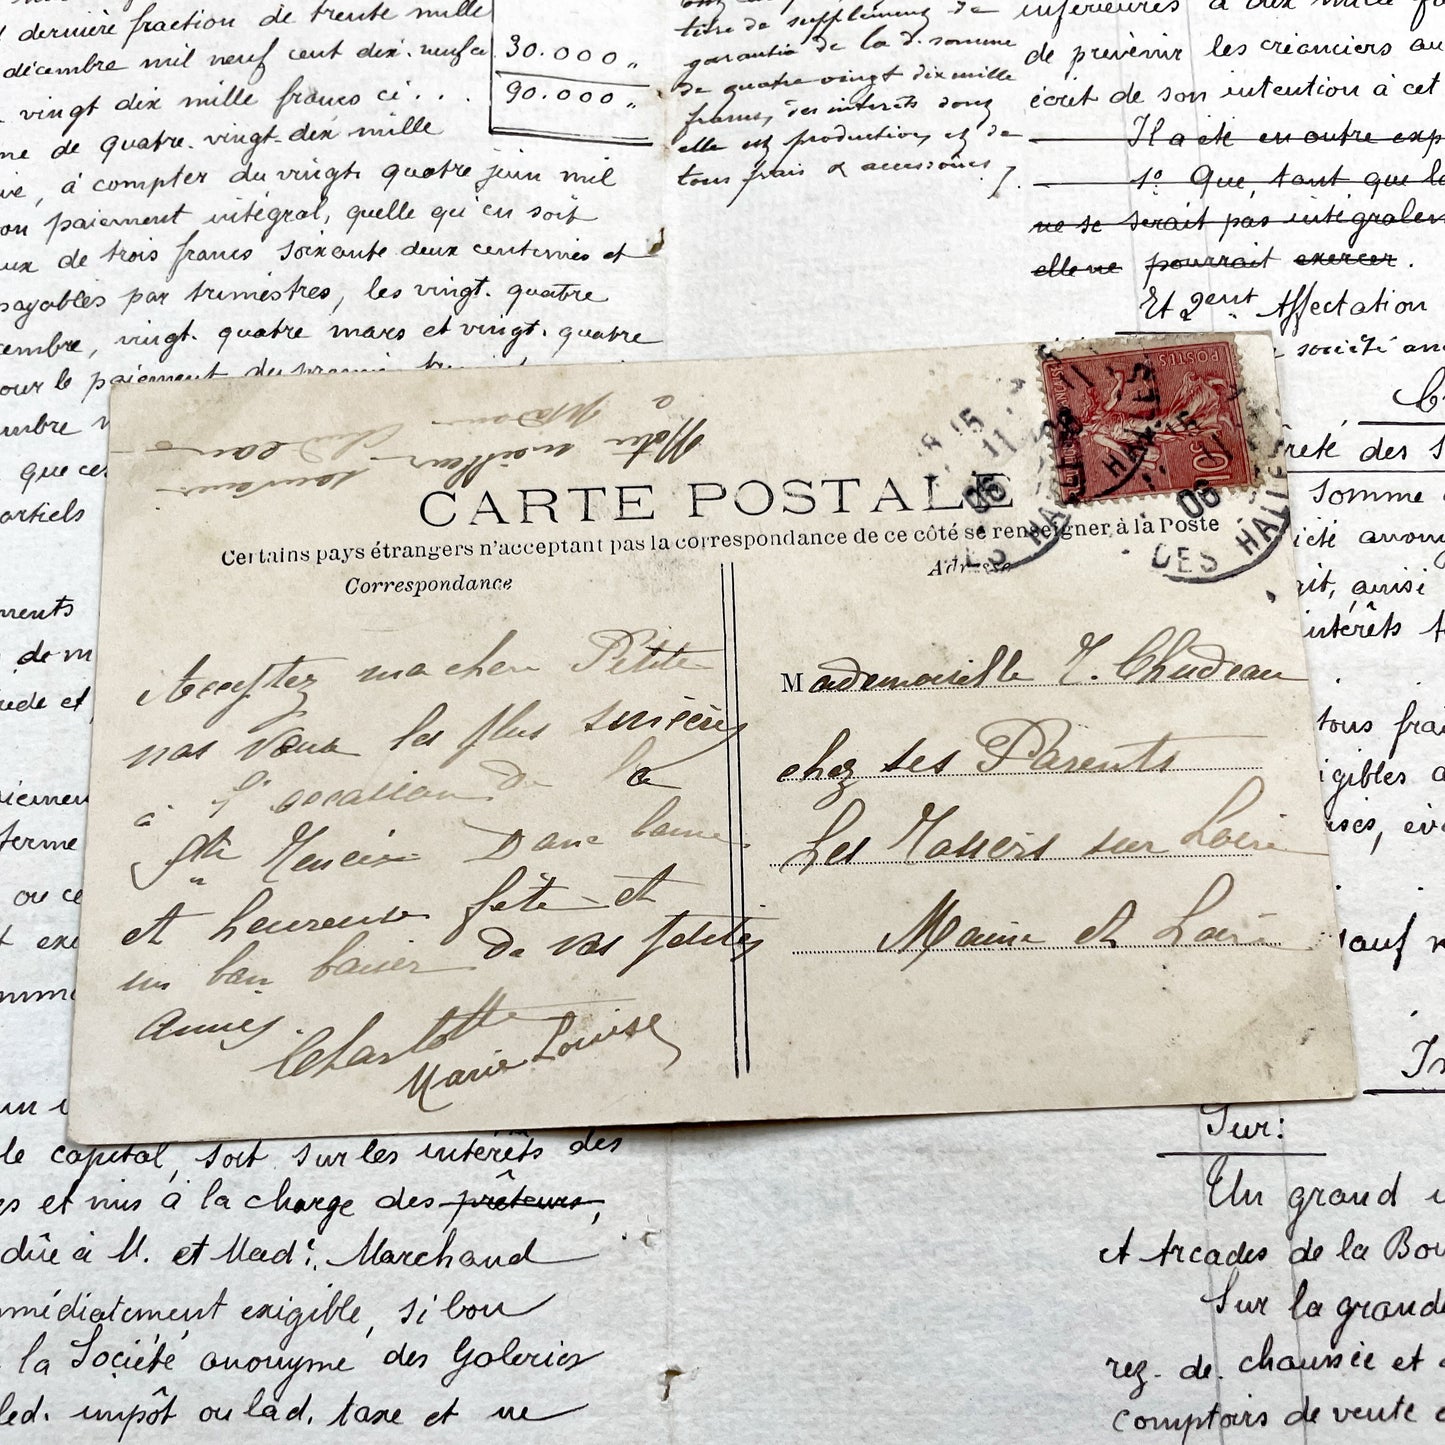 dernière fraction de trente mille
décembre mil neuf cent dix-neuf ci
30.000 "
vingt dix mille francs ci . . .
90.000 "
me de quatre-vingt-dix mille
à compter du vingt quatre juin mil
on paiement intégral, quelle qu'en soit
ux de trois francs soixante deux centimes et
payables par trimestres, les vingt-quatre
cembre, vingt-quatre mars et vingt-quatre
our le paiement du
titre de supplément de
garantie de la d. somme
de quatre vingt dix mille
francs, des intérêts dont
elle est productive, et de
tous frais & accessoires
inférieures à dix mille
de prévenir les créanciers au
écrit de son intention à cet
Il a été en outre exp
1º Que, tant que la
ne se serait pas intégralem
elle ne pourrait exercer.
Et 2ent Affectation
société an
reté des s
somme
ciété anony
ait, ainsi
intérêts
tous frai
igibles
sauf
que ces
artiels
ments
de m
ède et
ferme
ou ce
t exi
omme
à Madame Chudeau
Notre meilleur
souvenir
CARTE POSTALE
Certains pays étrangers n'acceptant pas la correspondance de ce côté se renseigner à la Poste
Correspondance
Adresse
POSTES
10c
15
11
06
DES HALLES
Acceptez ma chere Petite
nos vœux les plus sincères
à l'occasion de la
Ste
Donc bonne
et heureuse fête et
un bon baiser de vos petites
amies.
Charlotte
Marie Louise
Mademoiselle Y. Chudeau
chez ses Parents
Les Rosiers sur Loire
Maine et Loire
le capital, soit sur les intérêts des
es et mis à la charge des prêteurs,
dûe à M. et Made. Marchand
mmédiatement exigible, si bon
la Société anonyme des Galeries
led. impôt ou lad. taxe et ne
Sur:
Un grand
et Arcades de la Bou
Sur la grande
rez-de-chaussée et
comptoirs de vente